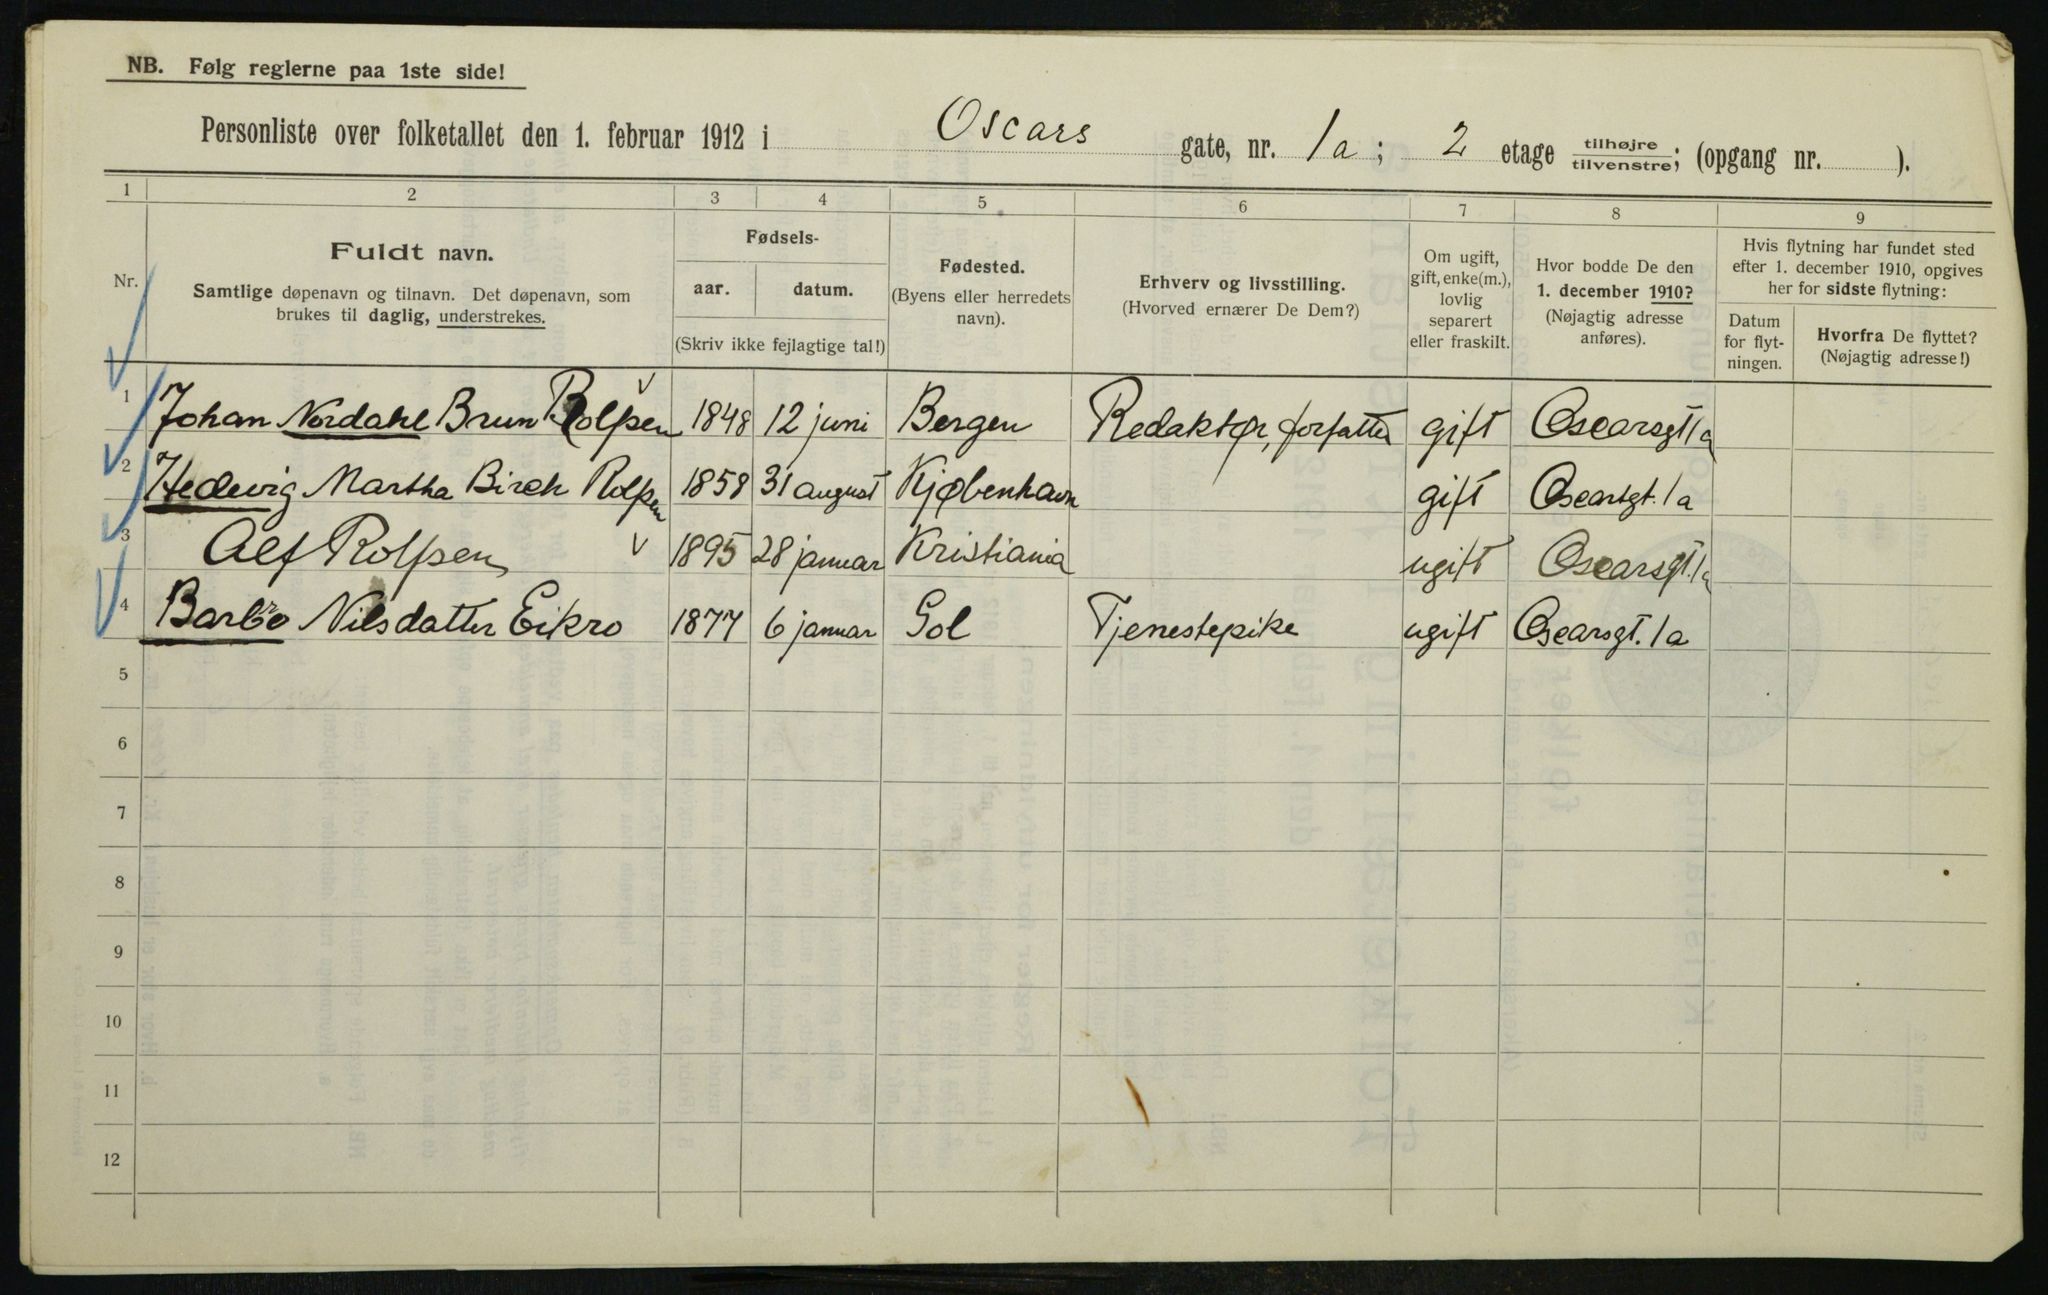 NB. Følg reglerne paa 1ste side!
Personliste over folketallet den 1. februar 1912 i Oscars gate, nr. 1a; 2 etage tilhøjre/tilvenstre; (opgang nr. ).
1 2 3 4 5 6 7 8 9
Nr.
Fuldt navn.
Samtlige døpenavn og tilnavn. Det døpenavn, som
brukes til daglig, understrekes.
Fødsels-
aar. datum.
(Skriv ikke fejlagtige tal!)
Fødested.
(Byens eller herredets
navn).
Erhverv og livsstilling.
(Hvorved ernærer De Dem?)
Om ugift,
gift, enke(m.),
lovlig
separert
eller fraskilt.
Hvor bodde De den
1. december 1910?
(Nøjagtig adresse
anføres).
Hvis flytning har fundet sted
efter 1. december 1910, opgives
her for sidste flytning:
Datum
for flyt-
ningen.
Hvorfra De flyttet?
(Nøjagtig adresse!)
1 Johan Nordahl Brun Rolfsen 1848 12 juni Bergen Redaktør, forfatter gift Oscarsgt 1a
2 Hedevig Martha Birch Rolfsen 1858 31 august Kjøbenhavn gift Oscarsgt. 1a
3 Alf Rolfsen 1895 28 januar Kristiania ugift Oscarsgt. 1a
4 Barbo Nilsdatter Eikro 1877 6 januar Gol Tjenestepike ugift Oscarsgt. 1a
5
6
7
8
9
10
11
12